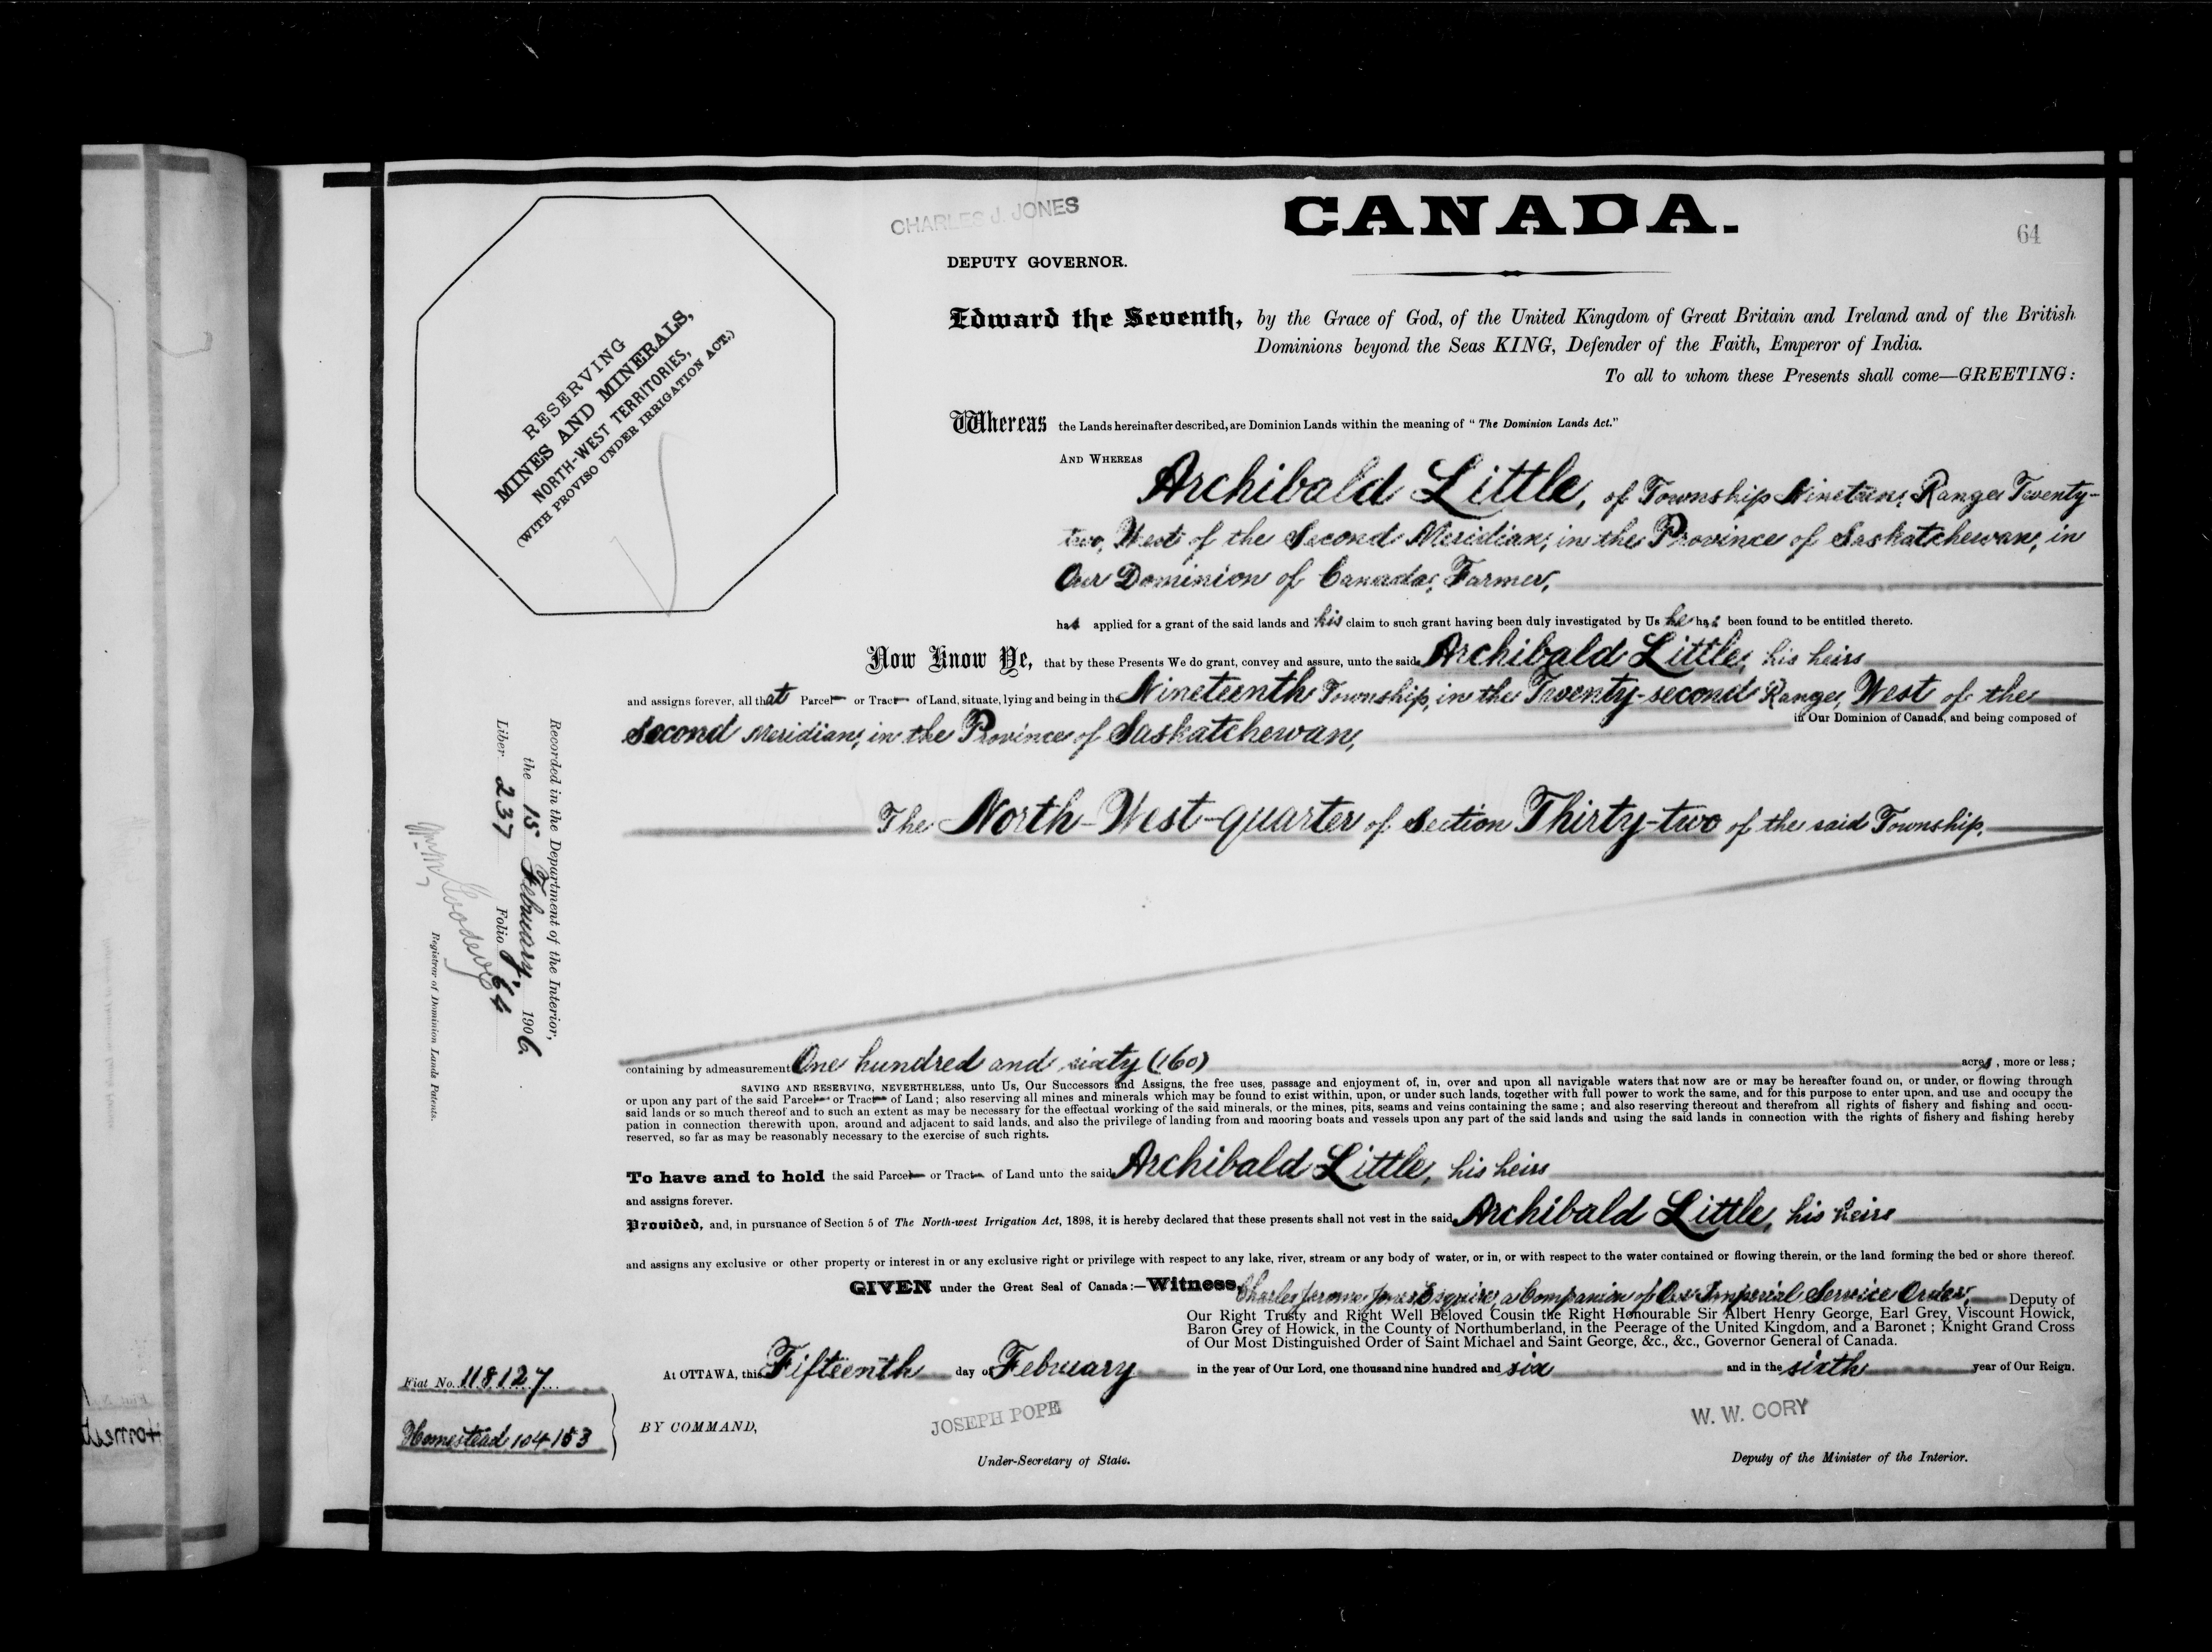 CHARLES J. JONES
CANADA.
64
DEPUTY GOVERNOR.
RESERVING
MINES AND MINERALS,
NORTH-WEST TERRITORIES,
(WITH PROVISO UNDER IRRIGATION ACT.)
Edward the Seventh, by the Grace of God, of the United Kingdom of Great Britain and Ireland and of the British
Dominions beyond the Seas KING, Defender of the Faith, Emperor of India.
To all to whom these Presents shall come—GREETING:
Whereas the Lands hereinafter described, are Dominion Lands within the meaning of "The Dominion Lands Act."
AND WHEREAS
Archibald Little, of Township Nineteen, Range Twenty-
two, West of the Second Meridian, in the Province of Saskatchewan, in
Our Dominion of Canada, Farmer,
has applied for a grant of the said lands and his claim to such grant having been duly investigated by Us he has been found to be entitled thereto.
Now Know Ye, that by these Presents We do grant, convey and assure, unto the said Archibald Little, his heirs
and assigns forever, all that Parcel or Tract of Land, situate, lying and being in the Nineteenth Township, in the Twenty-second Range, West of the
in Our Dominion of Canada, and being composed of
Second Meridian, in the Province of Saskatchewan,
The North-West-quarter of Section Thirty-two of the said Township.
Recorded in the Department of the Interior,
the 15 February, 1906
Liber 237 Folio 64
Registrar of Dominion Lands Patents.
containing by admeasurement One hundred and sixty (160) acres, more or less;
SAVING AND RESERVING, NEVERTHELESS, unto Us, Our Successors and Assigns, the free uses, passage and enjoyment of, in, over and upon all navigable waters that now are or may be hereafter found on, or under, or flowing through
or upon any part of the said Parcel or Tract of Land; also reserving all mines and minerals which may be found to exist within, upon, or under such lands, together with full power to work the same, and for this purpose to enter upon, and use and occupy the
said lands or so much thereof and to such an extent as may be necessary for the effectual working of the said minerals, or the mines, pits, seams and veins containing the same; and also reserving thereout and therefrom all rights of fishery and fishing and occu-
pation in connection therewith upon, around and adjacent to said lands, and also the privilege of landing from and mooring boats and vessels upon any part of the said lands and using the said lands in connection with the rights of fishery and fishing hereby
reserved, so far as may be reasonably necessary to the exercise of such rights.
To have and to hold the said Parcel or Tract of Land unto the said Archibald Little, his heirs
and assigns forever.
Provided, and, in pursuance of Section 5 of The North-west Irrigation Act, 1898, it is hereby declared that these presents shall not vest in the said Archibald Little, his heirs
and assigns any exclusive or other property or interest in or any exclusive right or privilege with respect to any lake, river, stream or any body of water, or in, or with respect to the water contained or flowing therein, or the land forming the bed or shore thereof.
GIVEN under the Great Seal of Canada:—Witness, Charles Jerome Jones, Esquire, a Companion of Our Imperial Service Order, Deputy of
Our Right Trusty and Right Well Beloved Cousin the Right Honourable Sir Albert Henry George, Earl Grey, Viscount Howick,
Baron Grey of Howick, in the County of Northumberland, in the Peerage of the United Kingdom, and a Baronet; Knight Grand Cross
of Our Most Distinguished Order of Saint Michael and Saint George, &c., &c., Governor General of Canada.
At OTTAWA, this Fifteenth day of February in the year of Our Lord, one thousand nine hundred and six and in the sixth year of Our Reign.
Fiat No. 118127
Homestead 104153
BY COMMAND,
JOSEPH POPE
Under-Secretary of State.
W. W. CORY
Deputy of the Minister of the Interior.